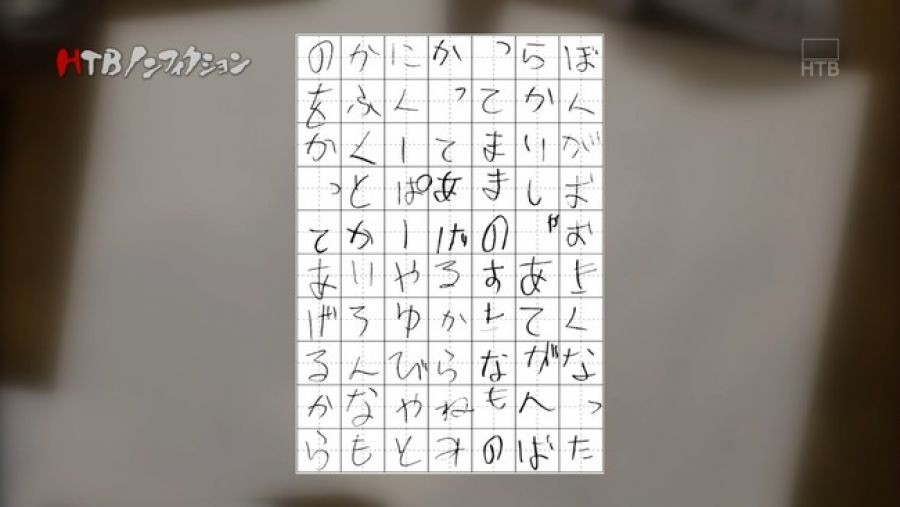 HTBノンフィクション
HTB
ぼんがおおきくなった
らかりしゃあてがんば
ってままのすきなもの
かってあげるからねみ
にくーぱーやゆびやと
かふくとかいろんなも
のをかってあげるから